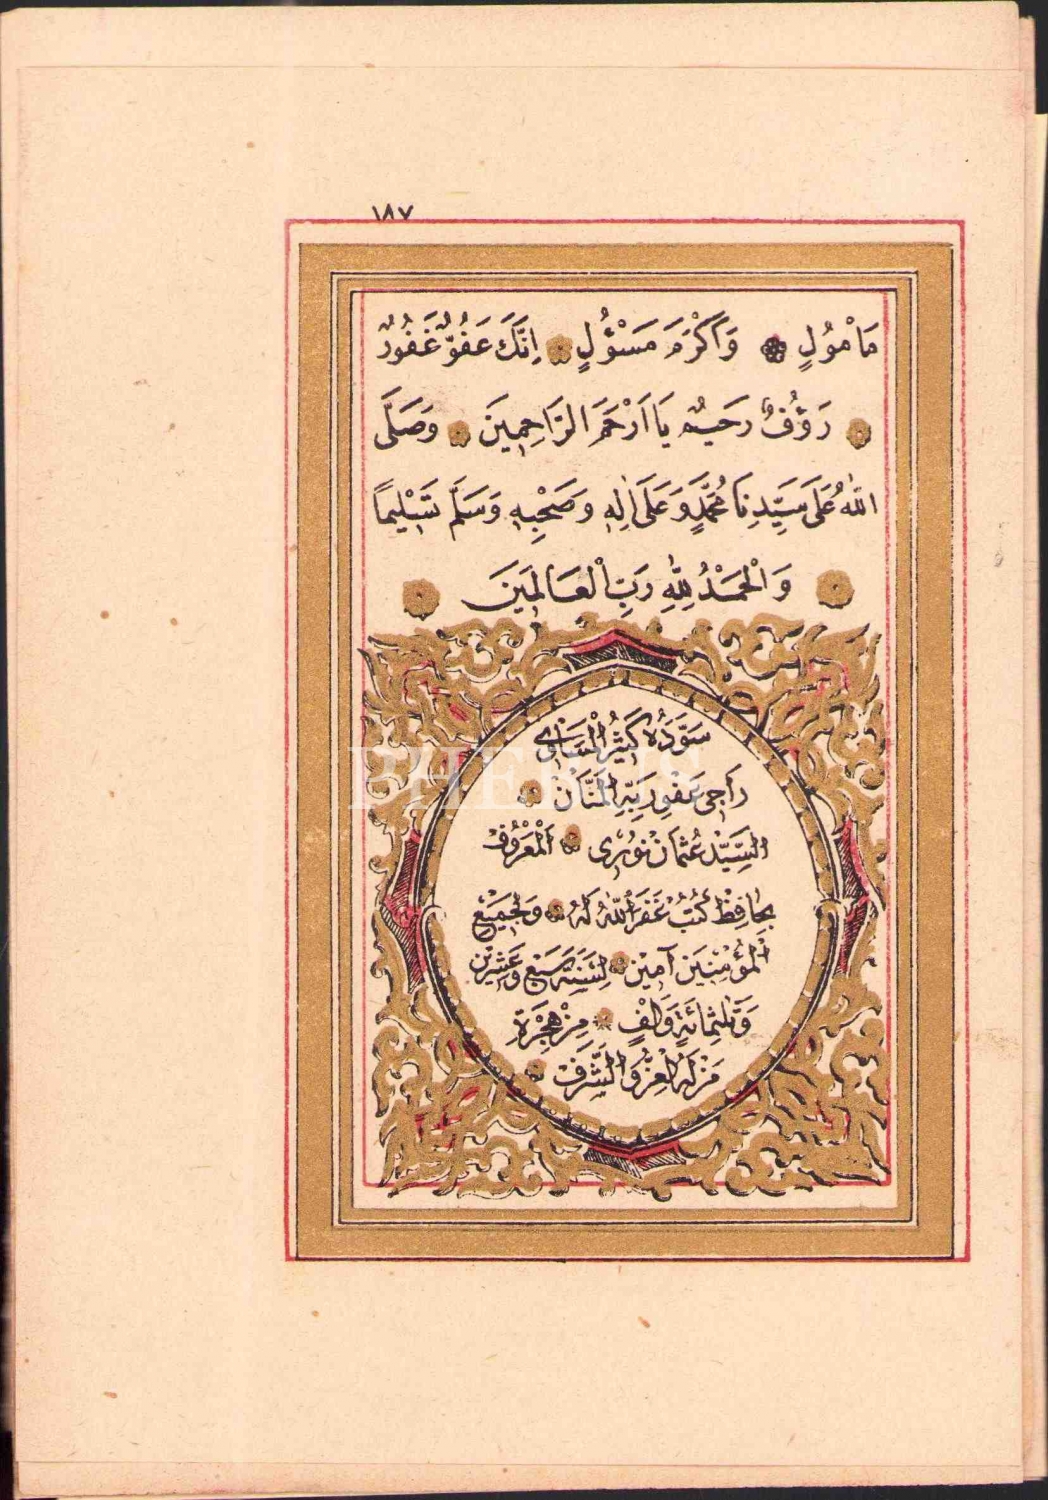 ١٨٧
مَأْمُولٍ وَاَكْرَمَ مَسْؤُلٍ اِنَّكَ عَفُوٌّ غَفُورٌ
رَؤُفٌ رَحِيمٌ يَا اَرْحَمَ الرَّاحِمِينَ وَصَلَّى
اللّٰهُ عَلَى سَيِّدِنَا مُحَمَّدٍ وَعَلَى اٰلِهِ وَصَحْبِهِ وَسَلَّمَ تَسْلِيمًا
وَالْحَمْدُ لِلّٰهِ رَبِّ الْعَالَمِينَ
سَوَّدَهُ كَثِيرُ الْمَسَاوِى
رَاجِى عَفْوِ رَبِّهِ الْمَنَّانْ
اَلسَّيِّدْ عُثْمَانْ نُورِى اَلْمَعْرُوفْ
بِحَافِظْ كُتُبْ غَفَرَ اللّٰهُ لَهُ وَلِجَمِيعِ
الْمُؤْمِنِينَ آمِينْ لِسَنَةِ سَبْعٍ وَعِشْرِينَ
وَثَلٰثِمِائَةٍ وَاَلْفٍ مِنْ هِجْرَةِ
مَنْ لَهُ الْعِزُّ وَالشَّرَفْ
PHEBUS